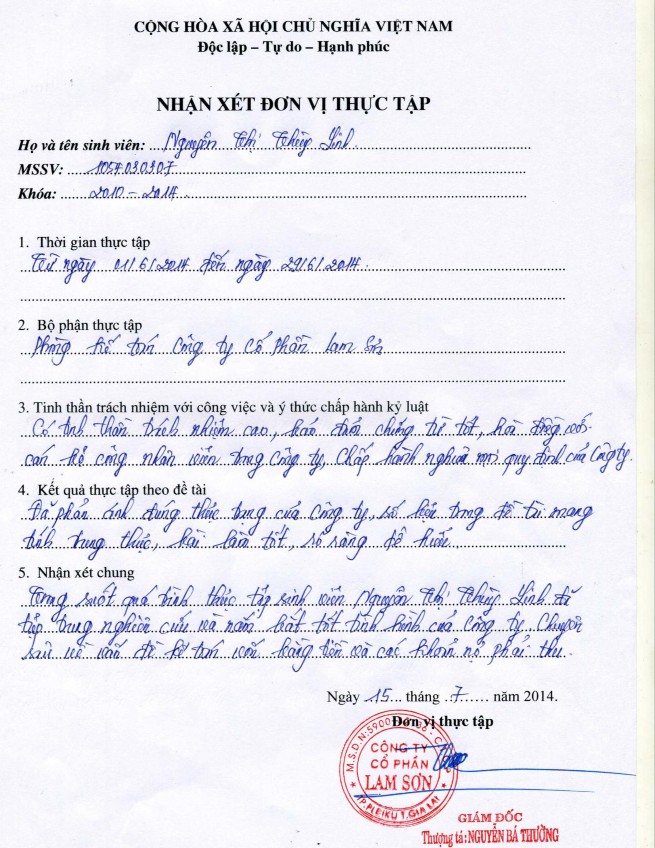 CỘNG HÒA XÃ HỘI CHỦ NGHĨA VIỆT NAM
Độc lập – Tự do – Hạnh phúc
NHẬN XÉT ĐƠN VỊ THỰC TẬP
Họ và tên sinh viên: Nguyễn Thị Thùy Linh
MSSV: 1054030307
Khóa: 2010 – 2014
1. Thời gian thực tập
Từ ngày 01/6/2014 đến ngày 29/6/2014.
2. Bộ phận thực tập
Phòng kế toán Công ty Cổ phần Lam Sơn
3. Tinh thần trách nhiệm với công việc và ý thức chấp hành kỷ luật
Có tinh thần trách nhiệm cao, chứng từ tốt, hòa đồng với
cán bộ công nhân viên trong công ty, Chấp hành nghiêm mọi quy định của Công ty.
4. Kết quả thực tập theo đề tài
Đã phản ánh đúng thực trạng của Công ty, số liệu trong đề tài mang
tính trung thực, bài làm tốt, dễ hiểu.
5. Nhận xét chung
Trong suốt quá trình thực tập sinh viên Nguyễn Thị Thùy Linh đã
tập trung nghiên cứu và nắm bắt tốt tình hình của Công ty, Chuyên
sâu về vấn đề kế toán vốn bằng tiền và các khoản nợ phải thu.
Ngày 15 tháng 7 năm 2014.
Đơn vị thực tập
M.S.D.N:5900
CÔNG TY
CỔ PHẦN
LAM SƠN
TP.PLEIKU T.GIA LAI
GIÁM ĐỐC
Thượng tá: NGUYỄN BÁ THƯỜNG